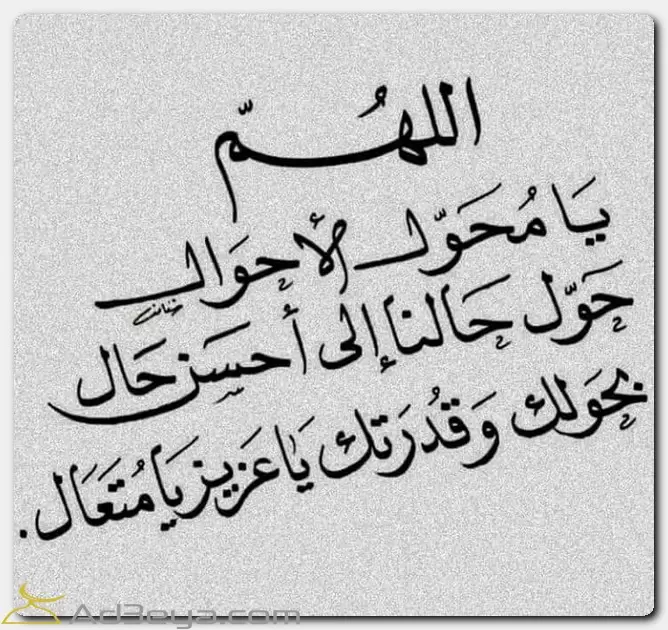 اللهُمّ
يَا مُحَوّل الأحوَال
حَوّل حَالنا إلى أحسَن حَال
بحَولك وَقُدرَتك يَا عَزيز يَا مُتعَال.
Ad3eya.com